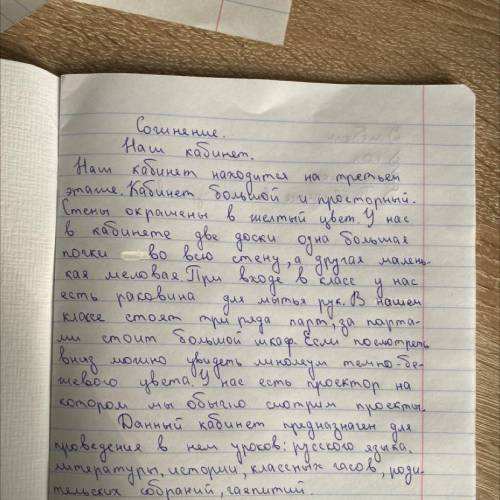 Сочинение.
Наш кабинет.
Наш кабинет находится на третьем
этаже. Кабинет большой и просторный.
Стены окрашены в желтый цвет. У нас
в кабинете две доски одна большая
почки во всю стену, а другая малень-
кая меловая. При входе в класс у нас
есть раковина для мытья рук. В нашем
классе стоят три ряда парт, за парта-
ми стоит большой шкаф. Если посмотреть
вниз можно увидеть линолеум темно-бе-
жевого цвета. У нас есть проектор на
котором мы обычно смотрим проекты.
Данный кабинет предназначен для
проведения в нем уроков: русского языка,
литературы, истории, классных часов, роди-
тельских собраний, чаепитий.